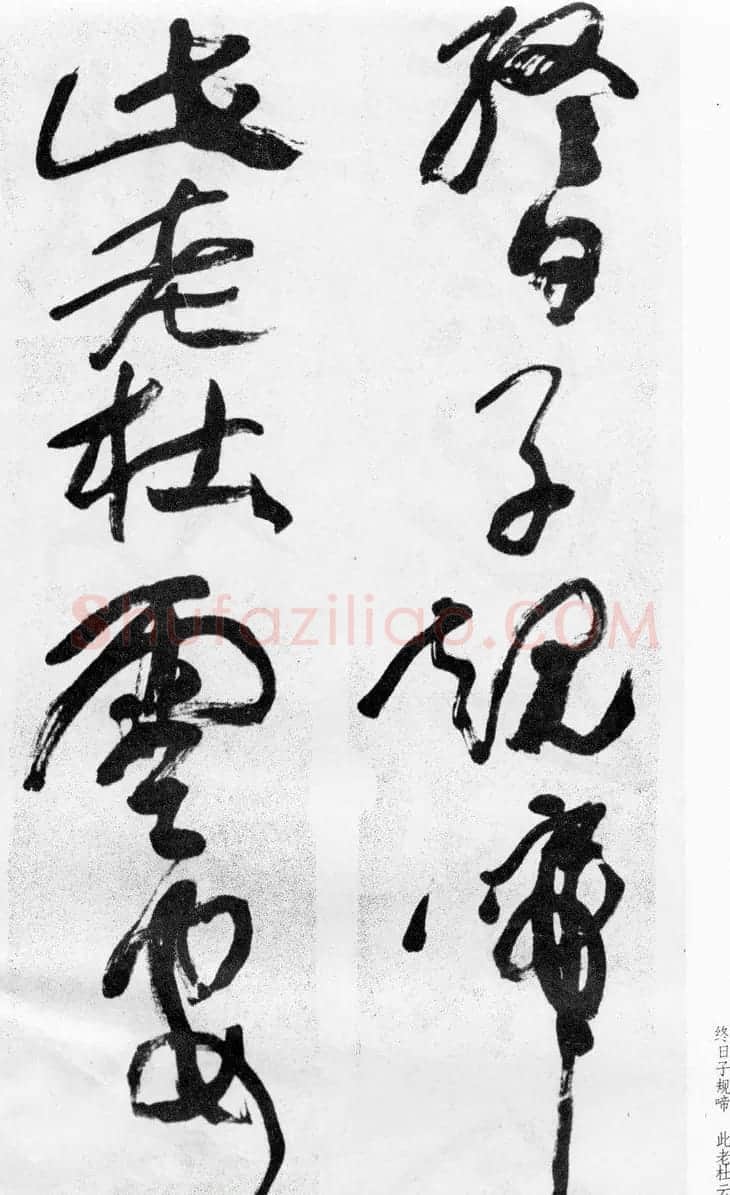 終日子規啼
此老杜雲安
终日子规啼 此老杜云
Shufaziliao.COM